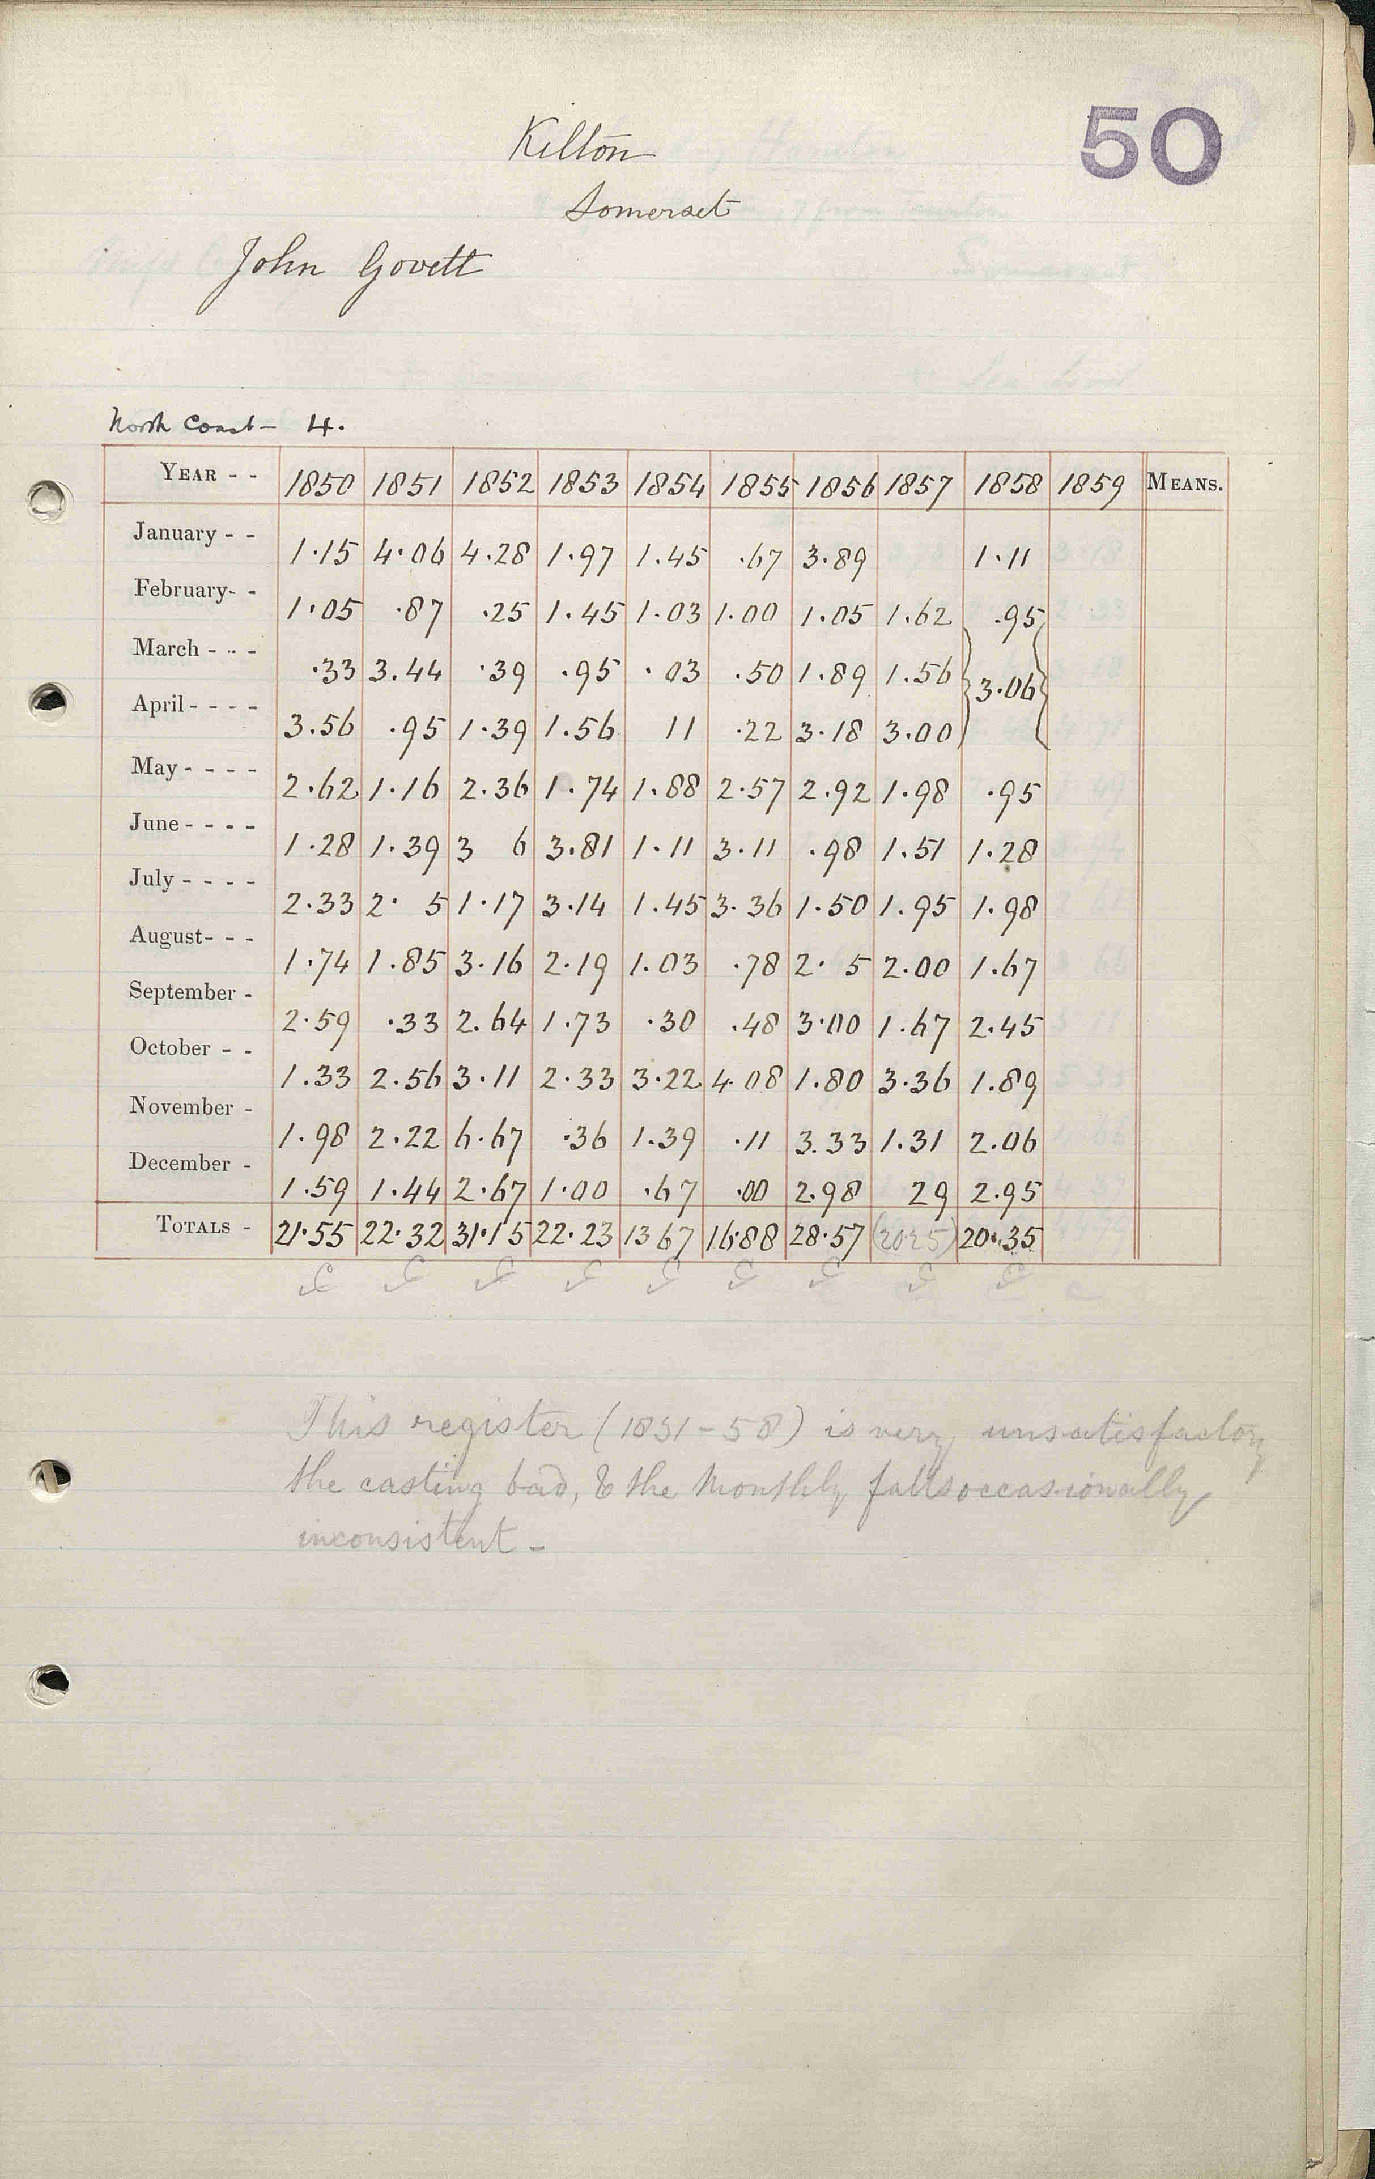 50
Kilton
Somerset
John Govett
North Coast - 4.
YEAR - - 1850 1851 1852 1853 1854 1855 1856 1857 1858 1859 MEANS.
January - - 1.15 4.06 4.28 1.97 1.45 .67 3.89 1.11
February- - 1.05 .87 .25 1.45 1.03 1.00 1.05 1.62 .95
March - - - .33 3.44 .39 .95 .03 .50 1.89 1.56
3.06
April - - - - 3.56 .95 1.39 1.56 11 .22 3.18 3.00
May - - - - 2.62 1.16 2.36 1.74 1.88 2.57 2.92 1.98 .95
June - - - - 1.28 1.39 3 6 3.81 1.11 3.11 .98 1.51 1.28
July - - - - 2.33 2. 5 1.17 3.14 1.45 3.36 1.50 1.95 1.98
August- - - 1.74 1.85 3.16 2.19 1.03 .78 2. 5 2.00 1.67
September - 2.59 .33 2.64 1.73 .30 .48 3.00 1.67 2.45
October - - 1.33 2.56 3.11 2.33 3.22 4.08 1.80 3.36 1.89
November - 1.98 2.22 6.67 .36 1.39 .11 3.33 1.31 2.06
December - 1.59 1.44 2.67 1.00 .67 .00 2.98 29 2.95
TOTALS - 21.55 22.32 31.15 22.23 13 67 16.88 28.57 (20.25) 20.35
This register (1851-58) is very unsatisfactory
the casting bad, & the Monthly falls occasionally
inconsistent -